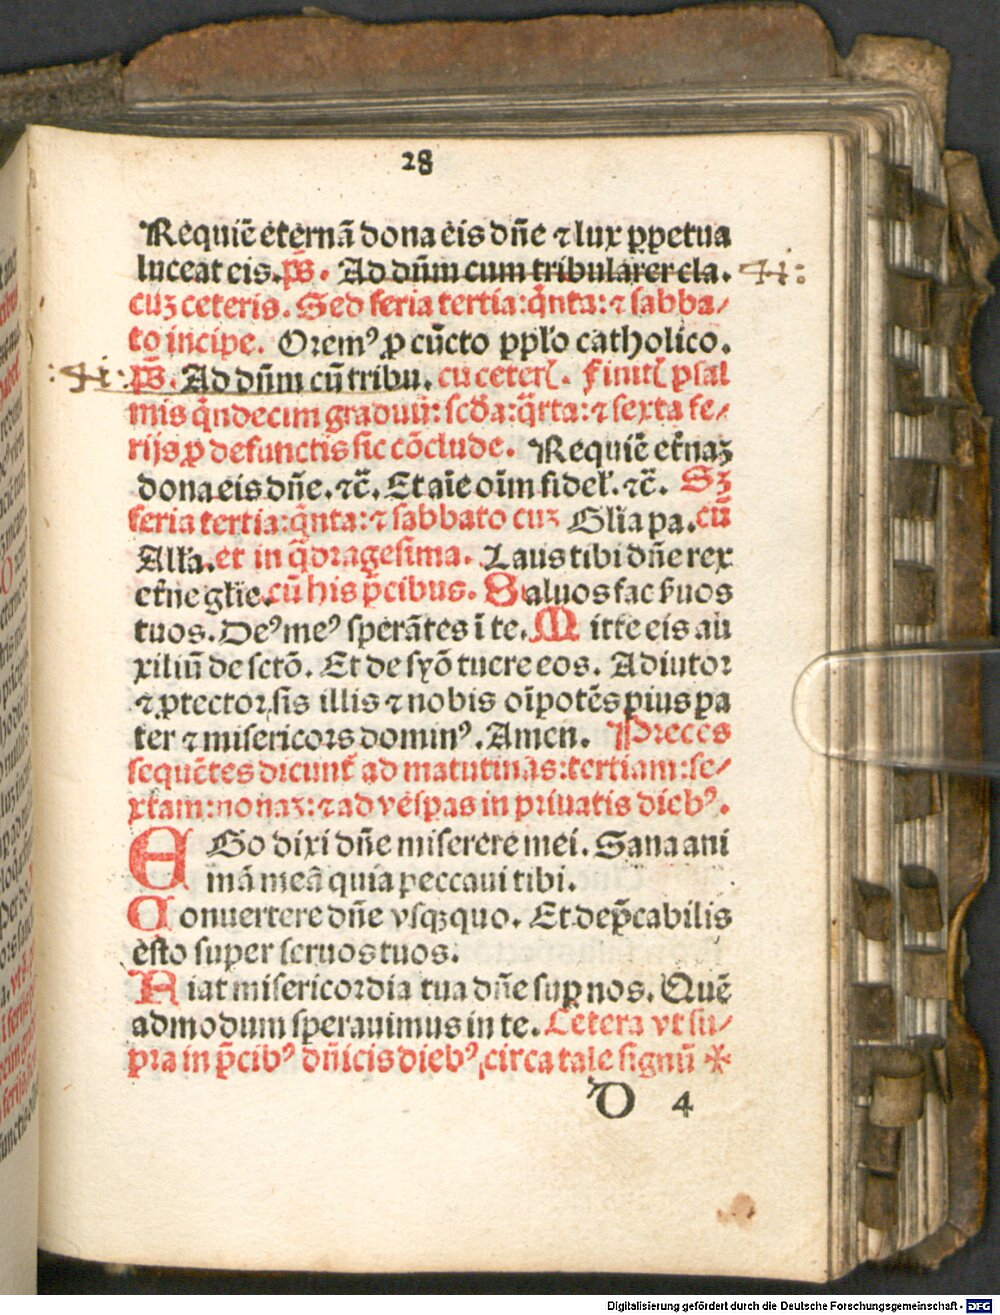 28
Requiē eternā dona eis dn̄e ⁊ lux ꝑpetua
luceat eis. ps̄. Ad dn̄m cum tribularer cla.
cuʒ ceteris. Sed feria tertia: q̄nta: ⁊ sabba/
to incipe. Oremꝰ ꝓ cūcto ppl'o catholico.
ps̄. Ad dn̄m cū tribu. cu ceterꝭ. Finitꝭ psal
mis q̄ndecim graduū: scd'a: q̄rta: ⁊ sexta fe/
rijs ꝓ defunctis sic cōclude. Requiē et̄naʒ
dona eis dn̄e. ⁊c̄. Et aīe oīm fidel'. ⁊c̄. Sʒ
feria tertia: q̄nta: ⁊ sabbato cuʒ Gl'ia pa. cū
All'a. et in q̄dragesima. Laus tibi dn̄e rex
et̄ne gl'ie. cū his p̄cibus. Saluos fac s̄uos
tuos. Deꝰ meꝰ sperātes ī te. Mitte eis au
xiliū de sctō. Et de syō tuere eos. Adiutor
⁊ ꝓtector sis illis ⁊ nobis oīpotēs pius pa
ter ⁊ misericors dominꝰ. Amen. Preces
sequētes dicunt᷑ ad matutinas: tertiam: se/
xtam: nonaʒ: ⁊ ad vesꝑas in priuatis diebꝰ.
EGo dixi dn̄e miserere mei. Sana ani
mā meā quia peccaui tibi.
Conuertere dn̄e vsqʒ quo. Et dep̄cabilis
esto super seruos tuos.
Fiat misericordia tua dn̄e suꝑ nos. Quē
admodum sperauimus in te. Cetera vt su/
pra in p̄cibꝰ dn̄icis diebꝰ, circa tale signū *
D 4
Digitalisierung gefördert durch die Deutsche Forschungsgemeinschaft - DFG